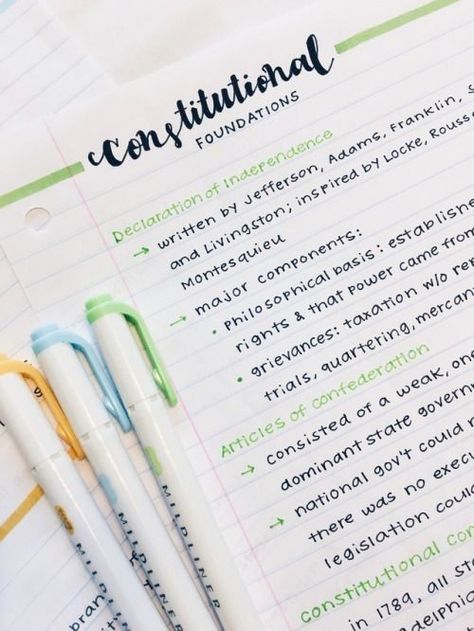 Constitutional
FOUNDATIONS
Declaration of Independence
→ written by Jefferson, Adams, Franklin, S
and Livingston; inspired by Locke, Rouss
Montesquieu
→ major components:
• Philosophical basis: establishe
rights & that power came from
• grievances: taxation w/o rep
trials, quartering, mercan
Articles of Confederation
→ consisted of a weak, one
dominant state govern
→ national gov't could n
there was no execu
legislation could
constitutional con
in 1789, all sta
adelphia
brand
MILDLINER
MILDLINER
MILDLINER